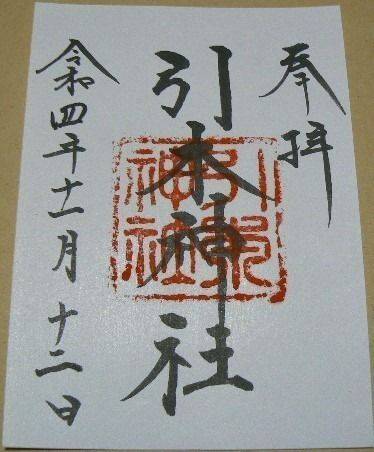 奉拝
引本神社
引本
神社
令和四年十一月十二日